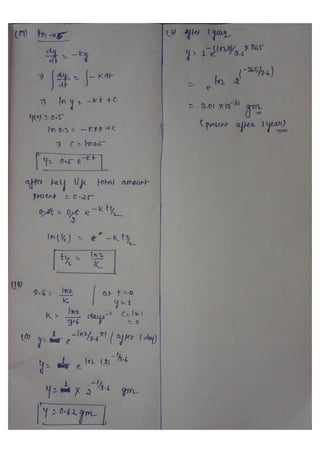 (17) ln 0.5
dy/dt = -ky
⇒ ∫ dy/dt = ∫ -k dt
⇒ ln y = -kt + C
y(0) = 0.5
ln 0.5 = -k×0 + C
⇒ C = ln 0.5
y = 0.5 e^-kt
after half life total amount
present = 0.25
0.5/2 e^-k t1/2
ln(1/2) = -k t1/2
t1/2 = ln2/K
(18)
3.6 = ln2/K | at t=0
y=1
K = ln2/3.6 days^-1 C=ln1
=0
(a) y = 1 e^-ln2/3.6 ×1 (after 1 day)
y = e^ln (2)^-1/3.6
y = 1 × 2^-1/3.6 gm
y = 0.82 gm
(b) after 1 year
y = 1 e^-(ln2)/3.6 × 365
= e^ln 2^(-365/3.6)
= 3.01 × 10^-31 gm
(present after 1 year)